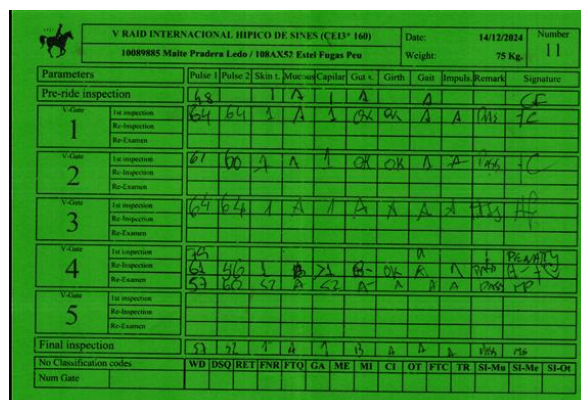 V RAID INTERNACIONAL HIPICO DE SINES (CEI3* 160) Date: 14/12/2024 Number
10089885 Maite Pradera Ledo / 108AX52 Estel Fugas Peu Weight: 75 Kg. 11
Parameters Pulse 1 Pulse 2 Skin t. Mucous Capilar Gut s. Girth Gait Impuls. Remark Signature
Pre-ride inspection 48 1 A 1 A A CF
V-Gate 1st inspection 64 64 1 A 1 OK OK A A Pass
1 Re-Inspection
Re-Examen
V-Gate 1st inspection 61 60 1 A 1 OK OK A A Pass
2 Re-Inspection
Re-Examen
V-Gate 1st inspection 64 64 1 A 1 A A A A
3 Re-Inspection
Re-Examen
V-Gate 1st inspection PENALTY
4 Re-Inspection 61 56 1 >1 OK
Re-Examen 57 60 <2 A <2 A- A A A Pass
V-Gate 1st inspection
5 Re-Inspection
Re-Examen
Final inspection 57 52 1 A 1 B A A A Pass
No Classification codes WD DSQ RET FNR FTQ GA ME MI CI OT FTC TR SI-Mu SI-Me SI-Ot
Num Gate